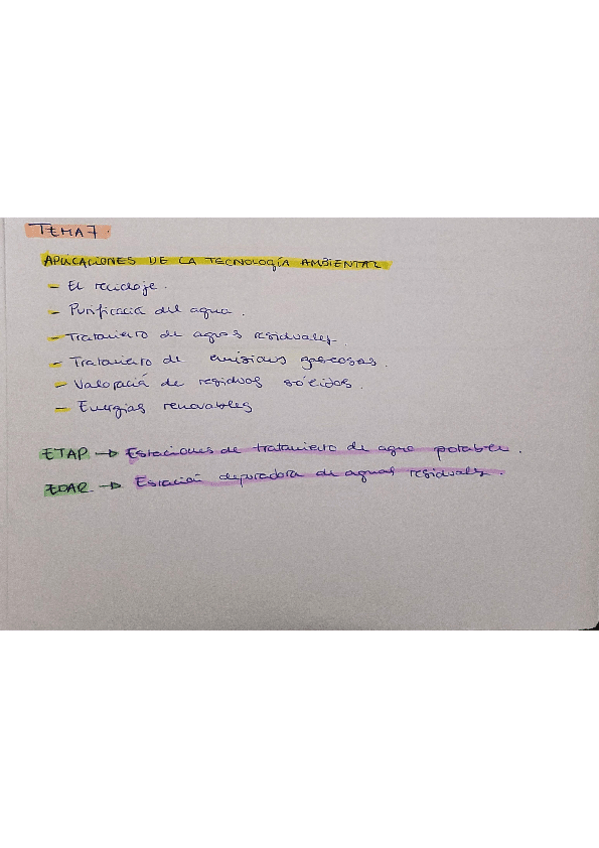 TEMA 7.
APLICACIONES DE LA TECNOLOGÍA AMBIENTAL
- El reciclaje.
- Purificación del agua.
- Tratamiento de aguas residuales.
- Tratamiento de emisiones gaseosas.
- Valoración de residuos sólidos.
- Energías renovables
ETAP → Estaciones de tratamiento de agua potable.
EDAR → Estación depuradora de aguas residuales.